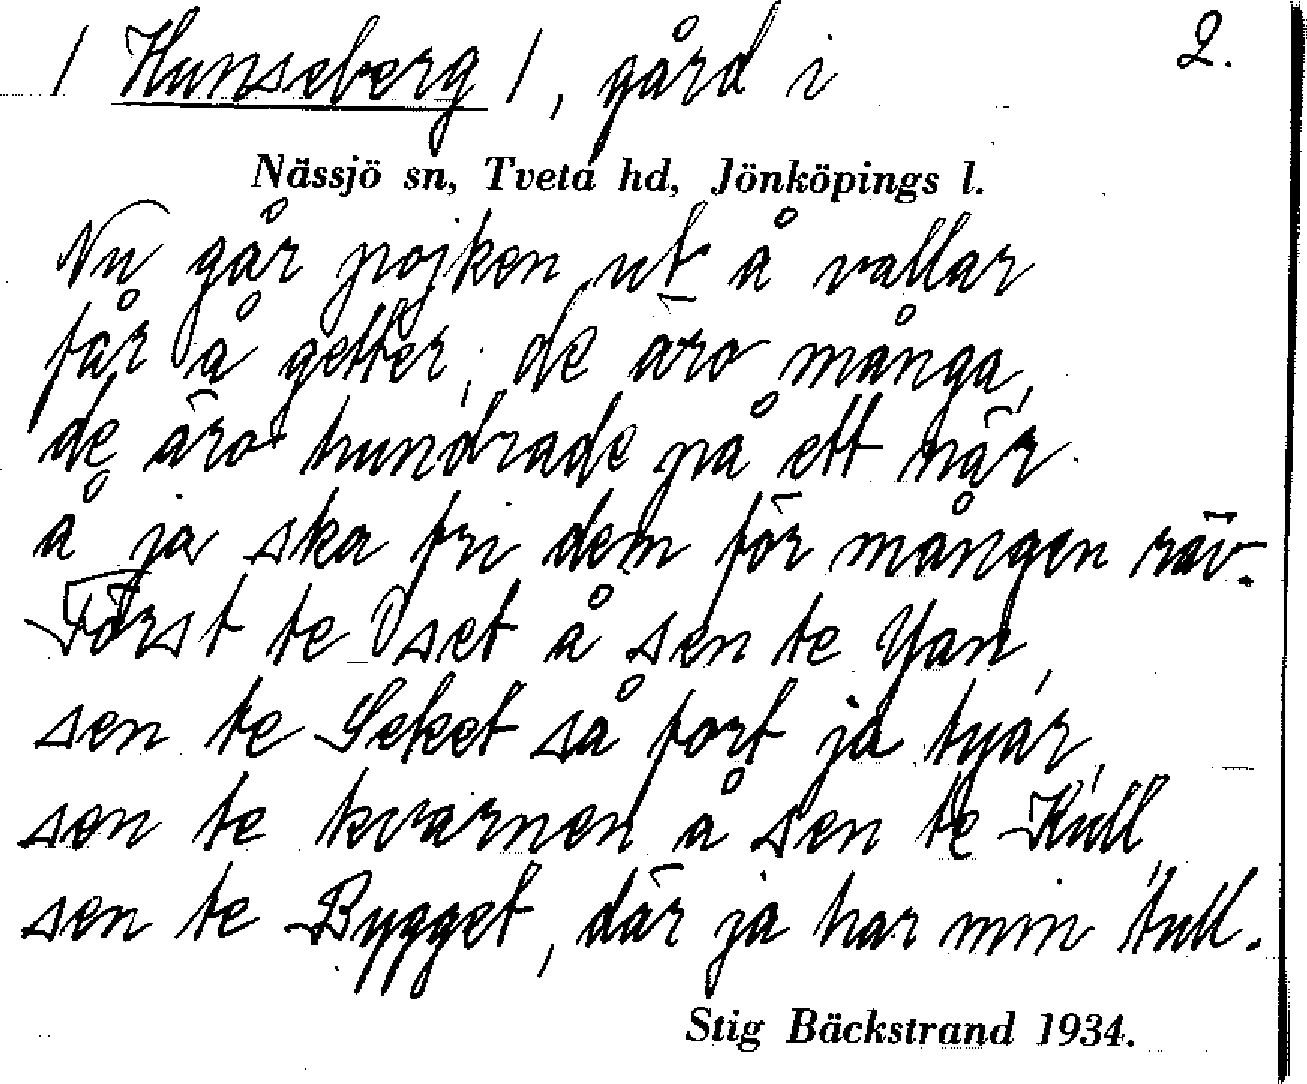 / Hunseberg /, gård i 2.
Nässjö sn, Tveta hd, Jönköpings l.
Nu går pojken ut å vallar
får å getter, de äro många,
de äro hundrade på ett när
å ja ska fri dem för mången räv.
Först te set å sen te Yan,
sen te Seket så fort ja tyar,
sen te kvarnen å sen te Kull,
sen te Bygget, där ja har min tull.
Stig Bäckstrand 1934.